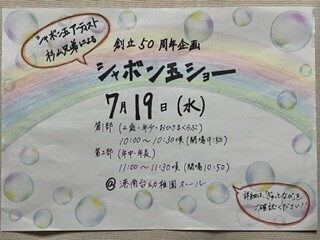 シャボン玉アーティスト
杉山兄弟による
創立50周年企画
シャボン玉ショー
7月19日(水)
第1部 (2歳・年少・おひさまくらぶ)
10:00～10:30頃 (開場9:50)
第2部 (年中・年長)
11:00～11:30頃 (開場10:50)
@ 港南台幼稚園ホール
詳細は、
ご確認ください!!